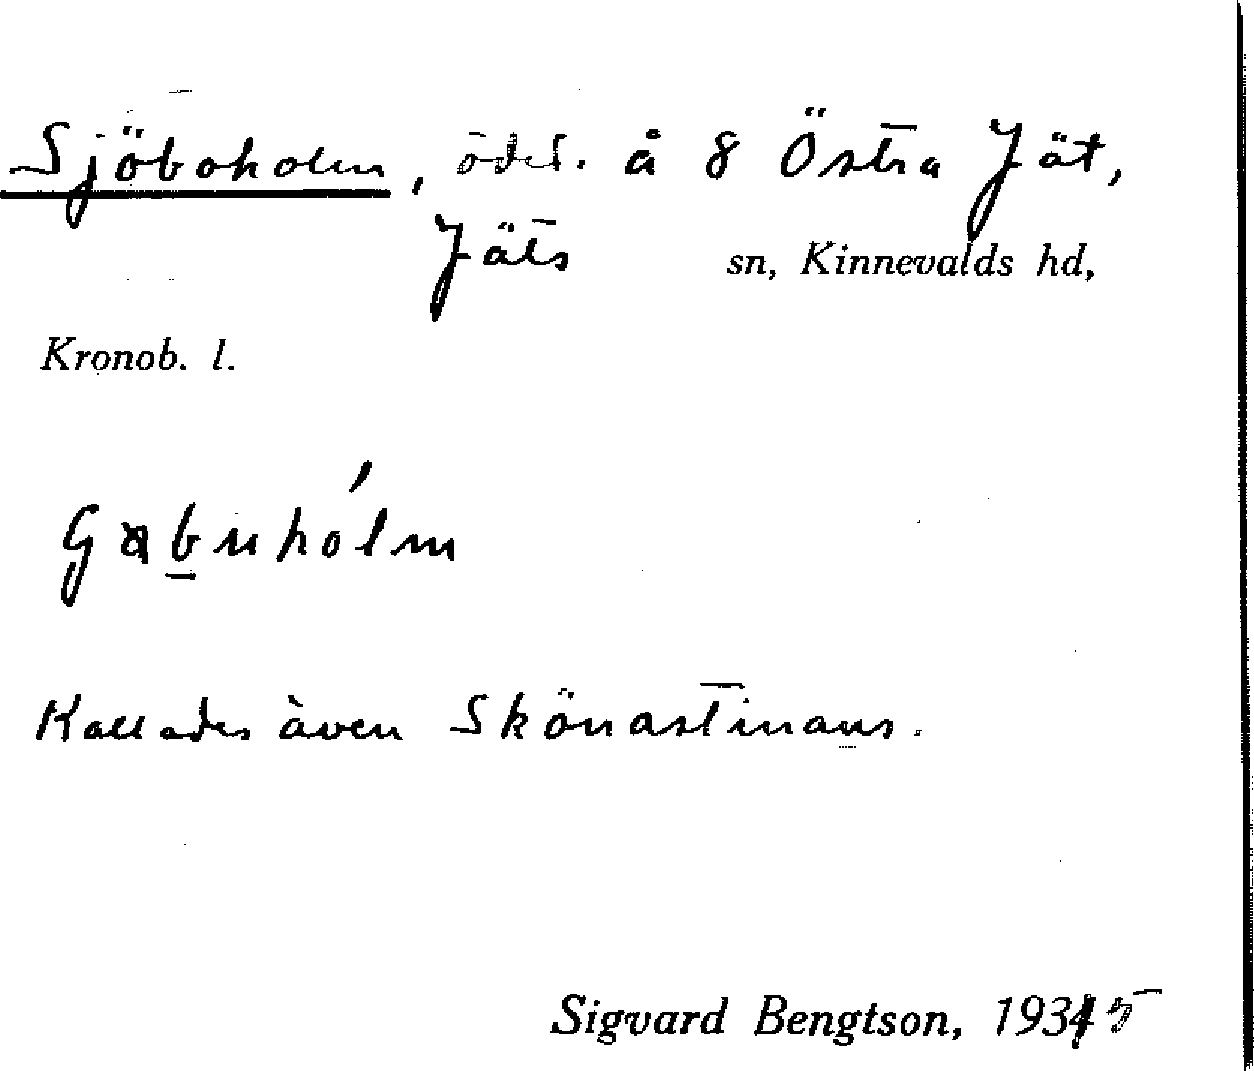 Sjöboholm, ödet. å 8 Östra Jät,
Jäts sn, Kinnevalds hd,
Kronob. l.
Kallades även Skönastinans.
Sigvard Bengtson, 1935